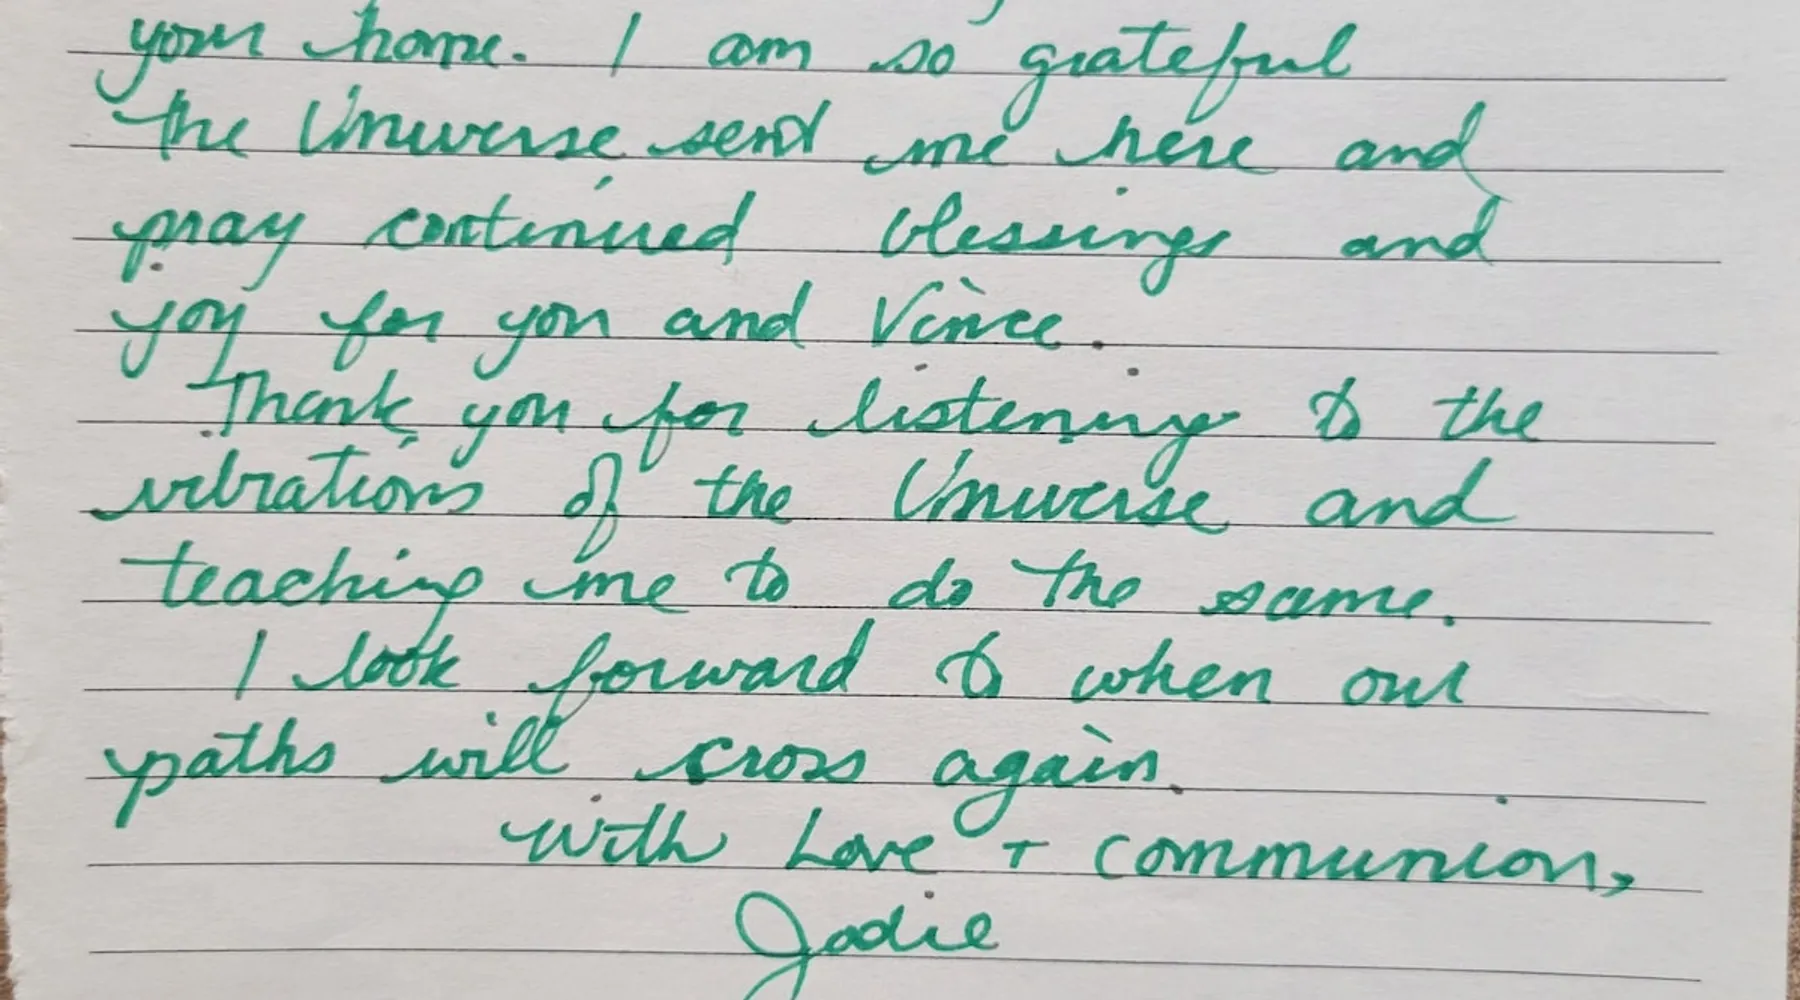 your home. I am so grateful
the Universe sent me here and
pray continued blessings and
joy for you and Vince.
Thank you for listening to the
vibrations of the Universe and
teaching me to do the same.
I look forward to when our
paths will cross again.
With Love + Communion,
Jodie